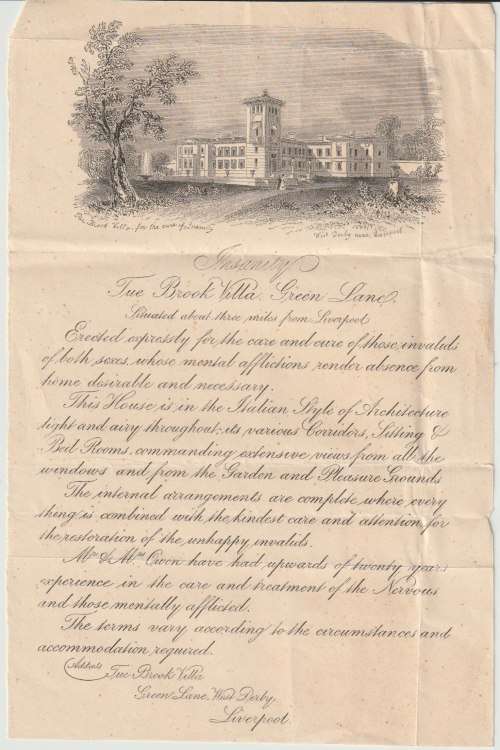 Tue Brook Villa, for the cure of Insanity
West Derby near Liverpool
Insanity
Tue Brook Villa, Green Lane,
Situated about three miles from Liverpool,
Erected expressly for the care and cure of those invalids
of both sexes, whose mental afflictions render absence from
home desirable and necessary.
This House is in the Italian Style of Architecture
light and airy throughout; its various Corridors, Sitting &
Bed Rooms, commanding extensive views from all the
windows and from the Garden and Pleasure Grounds
The internal arrangements are complete where every
thing is combined with the kindest care and attention for
the restoration of the unhappy invalids.
Mr. & Mrs. Owen have had upwards of twenty years
experience in the care and treatment of the Nervous
and those mentally afflicted.
The terms vary according to the circumstances and
accommodation required.
Address
Tue Brook Villa
Green Lane, West Derby,
Liverpool.